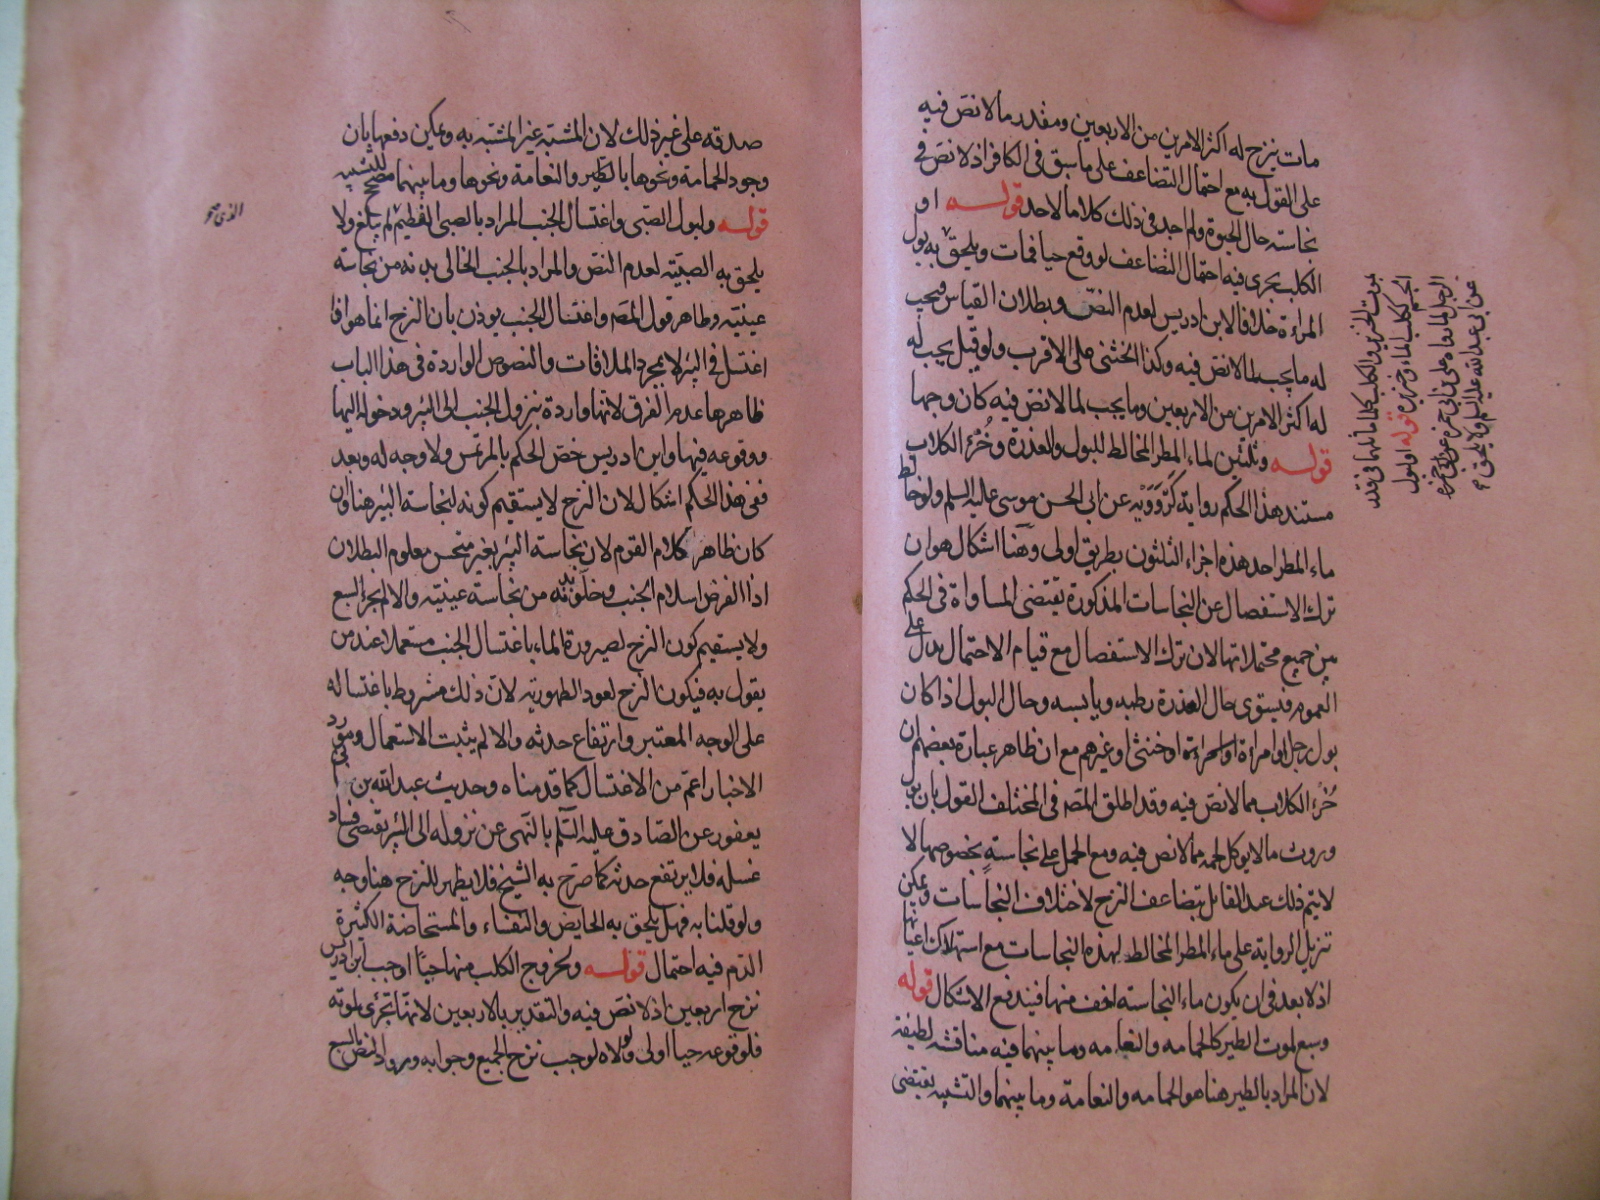 مات ينزح له اكثر الامرين من الاربعين ومقدر ما لا نص فيه
على القول به مع احتمال التضاعف على ما سبق فى الكافر اذ لا نص فى
نجاسته حال الحيوة ولم اجد فى ذلك كلاما لاحد قوله او
الكلب يجرى فيه احتمال التضاعف لو وقع حيا فمات ويلحق به بول
المراءة خلافا لابن ادريس لعدم النص وبطلان القياس فيجب
له ما يجب لما لا نص فيه وكذا الخنثى على الاقرب ولو قيل يجب له
له اكثر الامرين من الاربعين وما يجب لما لا نص فيه كان وجها
قوله وثلثين لماء المطر المخالط للبول والعذرة وخرء الكلاب
مستند هذا الحكم رواية كردويه عن ابى الحسن موسى عليه السلم ولو خالط
ماء المطر احد هذه اجزاء الثلثون بطريق اولى وهنا اشكال هو ان
ترك الاستفصال عن النجاسات المذكورة تقتضى المساواة فى الحكم
بين جميع محتملاتها لان ترك الاستفصال مع قيام الاحتمال يدل على
العموم فيستوى حال العذرة رطبه ويابسه وحال البول اذا كان
بول رجل او امراة او خنثى او غيرهم مع ان ظاهر عبارة بعضهم ان
خرء الكلاب مما لا نص فيه وقد اطلق المصه فى المختلف القول بان بول
وروث ما لا يوكل لحمه مما لا نص فيه ومع الحمل على نجاسة بخصوصها لا
لا يتم ذلك عند القائل بتضاعف النزح لاختلاف النجاسات ويمكن
تنزيل الرواية على ماء المطر المخالط لهذه النجاسات مع استهلاك اعيانها
اذ لا بعد فى ان يكون ماء النجاسة اخف منها فيندفع الاشكال قوله
وسبع لموت الطير كالحمامه والنعامه وما بينهما فيه مناقشة لطيفة
لان المراد بالطير هنا هو الحمامه والنعامة وما بينهما والتشبيه يقتضى
بموت الخنزير والكلب
الجسم ككلب الماء وخنزيره قوله او لبول
الرجل لما رواه على بن ابى حمزه
عن ابى عبد الله عليه السلم ولا يلحق
صدقه على غير ذلك لان المشبه غير المشبه به ويمكن دفعها بان
وجود الحمامة ونحوها بالطير والنعامة ونحوها وما بينهما مصحح للتشبيه
قوله ولبول الصبى واغتسال الجنب المراد بالصبى الفطيم لم يبلغ ولا
يلحق به الصبية لعدم النص والمراد بالجنب الخالى بدنه من نجاسة
عينية وظاهر قول المصه واغتسال الجنب يوذن بان النزح انما هو اذا
اغتسل فى البئر لا بمجرد الملاقات والنصوص الواردة فى هذا الباب
ظاهرها عدم الفرق لانها واردة بنزول الجنب الى البئر ودخوله اليها
ووقوعه فيها وابن ادريس خص الحكم بالمرتمس ولا وجه له وبعد
ففى هذا الحكم اشكال لان النزح لا يستقيم كونه لنجاسة البير هنا وان
كان ظاهر كلام القوم لان نجاسة البئر بغير منجس معلوم البطلان
اذ الفرض اسلام الجنب وخلو بدنه من نجاسة عينية والا لم يجز السبع
ولا يستقيم كون النزح لصيرورة الماء باغتسال الجنب مستعملا عند من
يقول به فيكون النزح لعود الطهورية لان ذلك مشروط باغتساله
على الوجه المعتبر وارتفاع حدثه والا لم يثبت الاستعمال ومورد
الاخبار اعم من الاغتسال كما قدمناه وحديث عبد الله بن ابى
يعفور عن الصادق عليه السلم بالنهى عن نزوله الى البئر يقتضى فساد
غسله فلا يرتفع حدثه كما صرح به الشيخ فلا يظهر للنزح هنا وجه
ولو قلنا به فهل يلحق به الحايض والنفساء والمستحاضة الكثيرة
الدم فيه احتمال قوله ولخروج الكلب منها حيا اوجب ابن ادريس
نزح اربعين اذ لا نص فيه والتقدير بالاربعين لانها تجزى لموته
فلوقوعه حيا اولى ولولاه لوجب نزح الجميع وجوابه ورود النص بالسبع
الذى